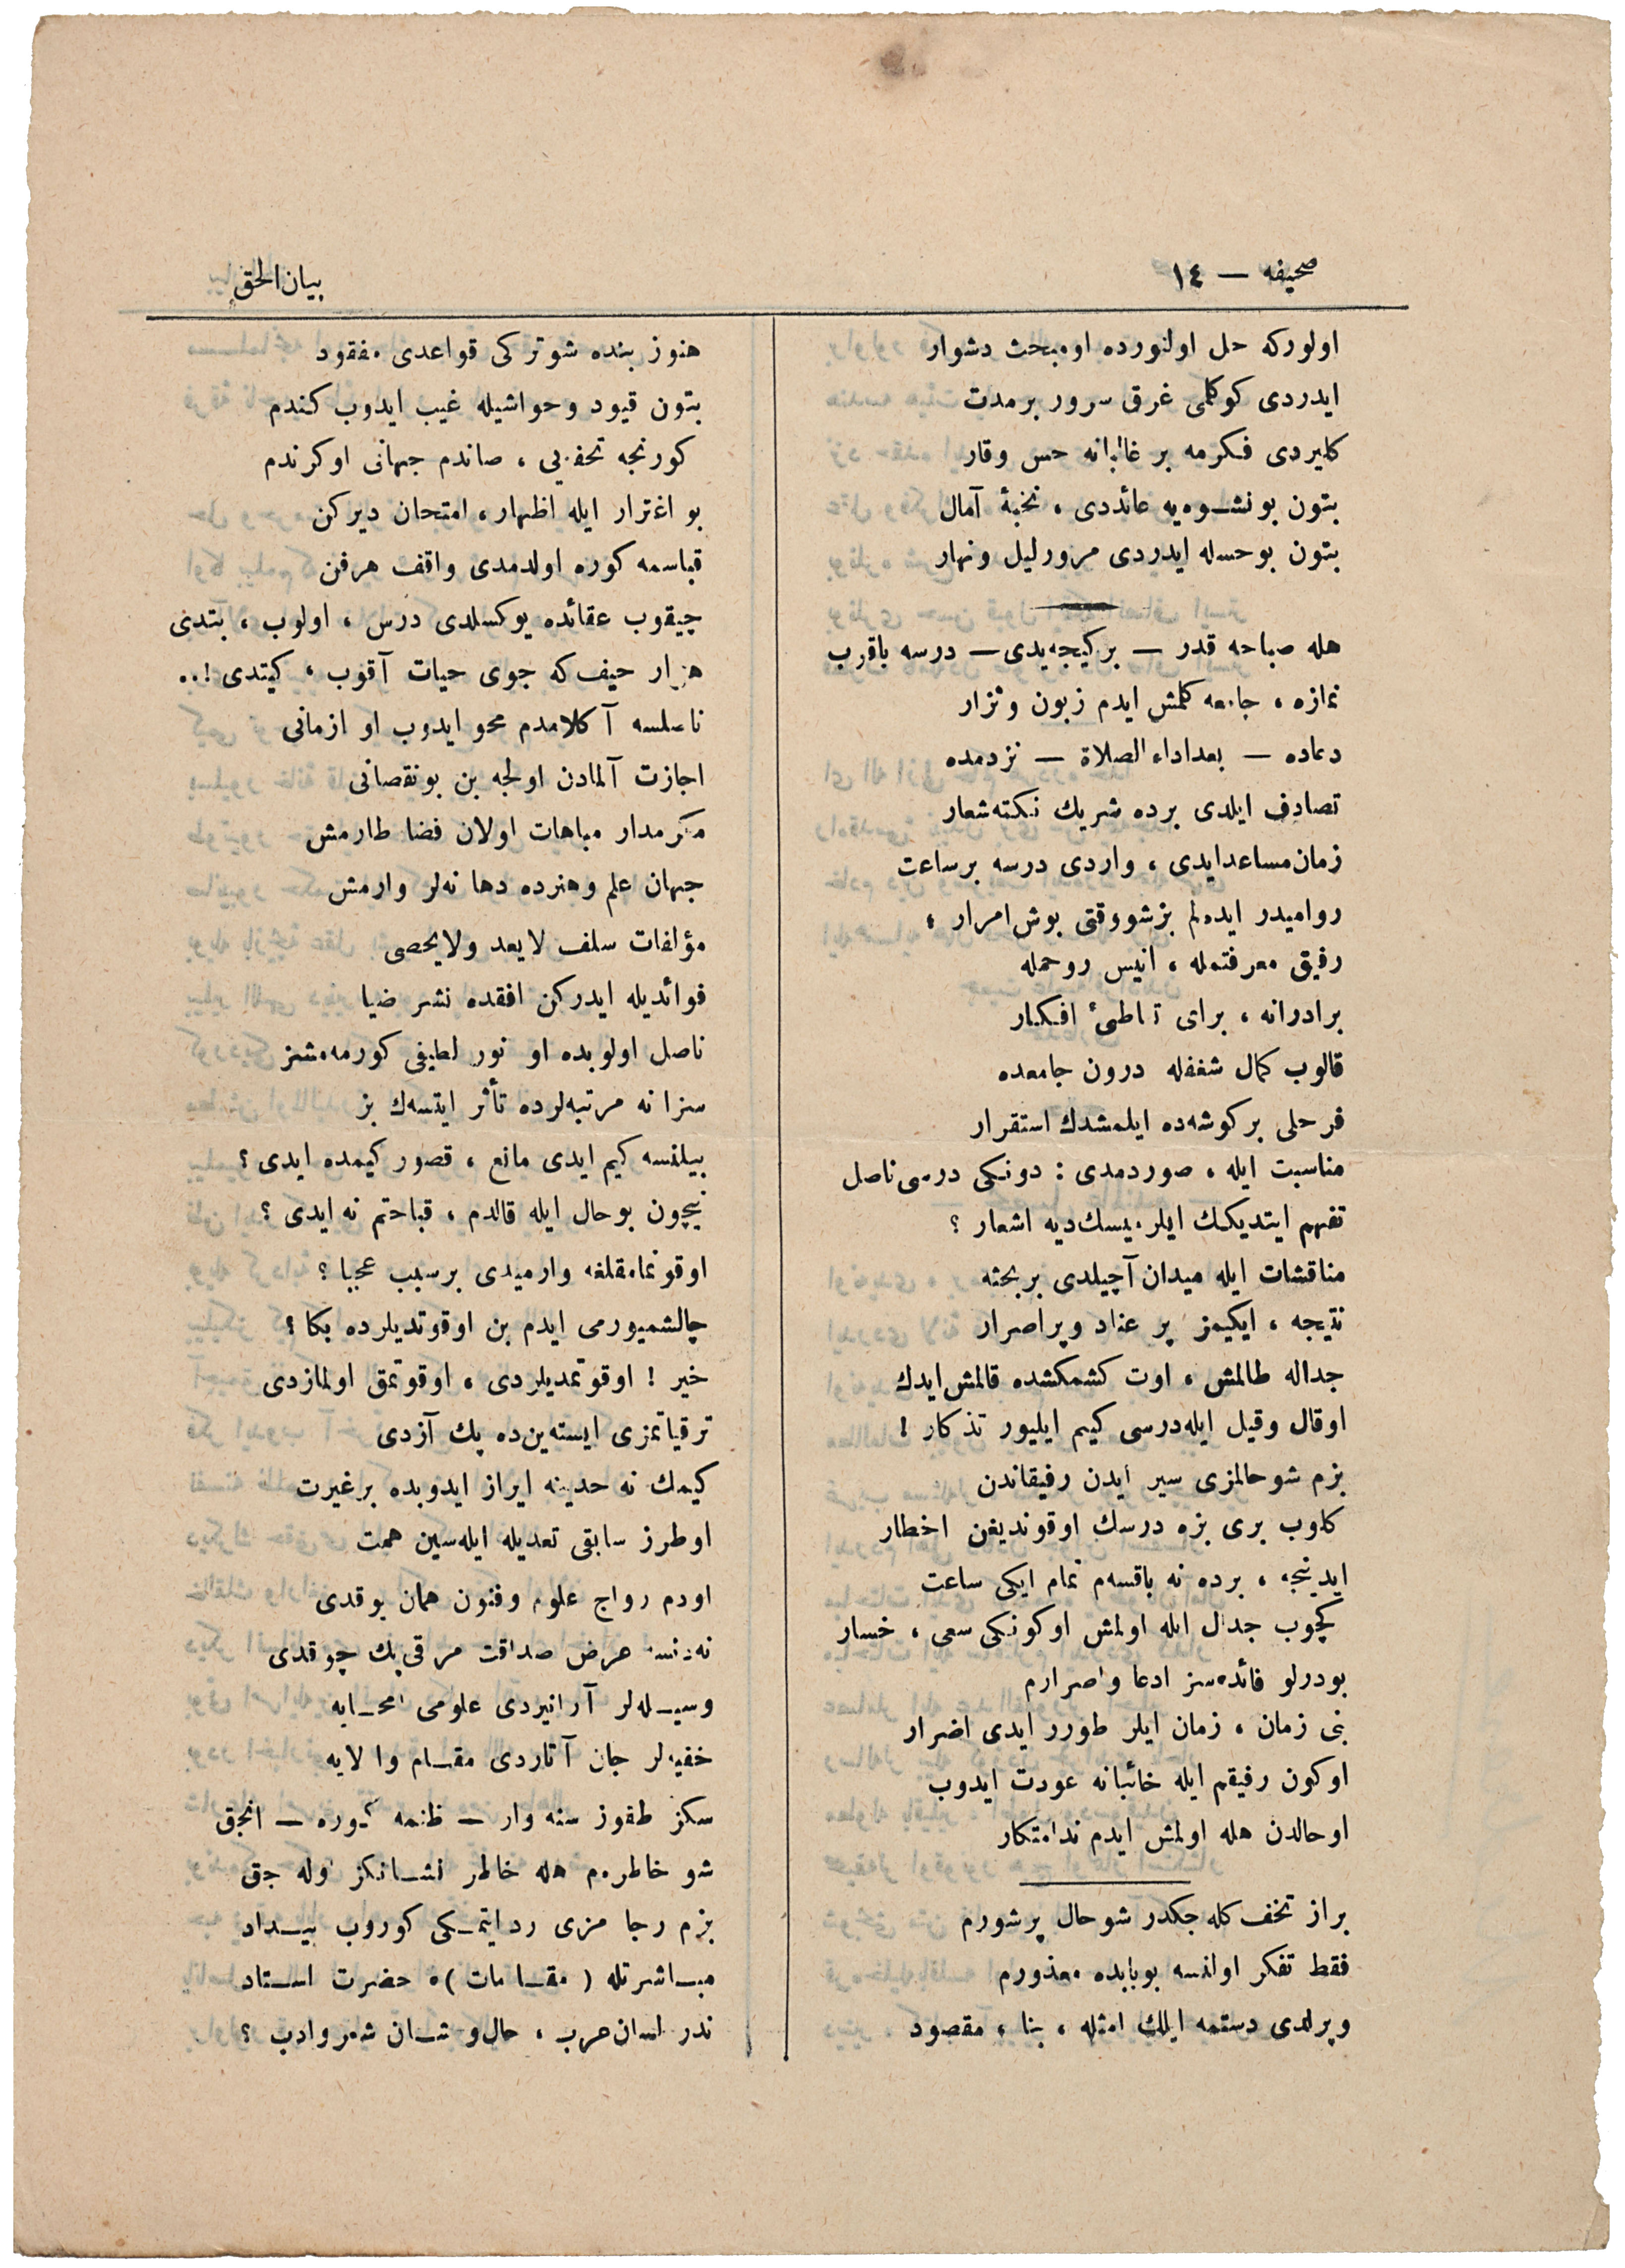 صحیفه — ١٤
بیان‌الحق
اولورکه حل اولنورده اومبحث دشوار
ایدردی کوکلمی غرق سرور برمدت
کلیردی فکرمه بر غالبانه حس وقار
بتون بونشوه‌یه عائددی ، نخبهٔ آمال
بتون بوحسله ایدردی مرور لیل ونهار
هله صباحه قدر — برکیجه‌یدی — درسه باقوب
نمازه ، جامعه کلمش ایدم زبون ونزار
دعاده — بعداداء الصلاة — نزدمده
تصادف ایلدی برده شریك نکته‌شعار
زمان‌مساعدایدی ، واردی درسه برساعت
روامیدر ایده‌لم بزشووقتی بوش‌امرار ،
رفیق معرفتمله ، انیس روحمله
برادرانه ، برای تعاطئ افکار
قالوب کمال شغفله درون جامعده
فرحلی برکوشه‌ده ایلمشدك استقرار
مناسبت ایله ، صوردمدی : دونکی درسی‌ناصل
تفهم ایتدیکك ایلرمیسك‌دیه اشعار ؟
مناقشات ایله میدان آچیلدی بربحثه
نتیجه ، ایکیمز پر عناد وپراصرار
جداله طالمش ، اوت کشمکشده قالمش‌ایدك
اوقال وقیل ایله‌درسی کیم ایلیور تذکار !
بزم شوحالمزی سیر ایدن رفیقاندن
کلوب بری بزه درسك اوقوندیغن اخطار
ایدینجه ، برده نه باقسه‌م تمام ایکی ساعت
کچوب جدال ایله اولمش اوکونکی سعی ، خسار
بودرلو فائده‌سز ادعا واصرارم
بنی زمان ، زمان ایلر طورر ایدی اضرار
اوکون رفیقم ایله خائبانه عودت ایدوب
اوحالدن هله اولمش ایدم ندامتکار
براز تخف کله‌جکدر شوحال پرشورم
فقط تفکر اولنسه بوبابده معذورم
ویرلدی دستمه ایلك امثله ، بنا ، مقصود
هنوز بنده شوترکی قواعدی مفقود
بتون قیود وحواشیله غیب ایدوب کندم
کورنجه تحفه‌یی ، صاندم جهانی اوکرندم
بو اغترار ایله اظهار ، امتحان دیرکن
قیاسمه کوره اولدمدی واقف هرفن
چیقوب عقائده یوکسلدی درس ، اولوب ، بتدی
هزار حیف‌که جوی حیات آقوب ، کیتدی !..
ناصلسه آکلامدم محو ایدوب او ازمانی
اجازت آلمادن اولجه بن بونقصانی
مکرمدار مباهات اولان فضا طارمش
جهان علم وهنرده دها نه‌لر وارمش
مؤلفات سلف لایعد ولایحصی
فوائدیله ایدرکن افقده نشر ضیا
ناصل اولوبده او نور لطیفی کورمه‌مشز
سزا نه مرتبه‌لرده تأثر ایتسه‌ك بز
بیلنسه کیم ایدی مانع ، قصور کیمده ایدی ؟
نیچون بوحال ایله قالدم ، قباحتم نه ایدی ؟
اوقونمامقلغه وارمیدی برسبب عجبا ؟
چالشمیورمی ایدم بن اوقوتدیلرده بکا ؟
خیر ! اوقوتمدیلردی ، اوقوتمق اولمازدی
ترقیاتمزی ایسته‌ین‌ده پك آزدی
کیمك نه حدینه ایراز ایدوبده برغیرت
اوطرز سابقی تعدیله ایله‌سین همت
اودم رواج علوم وفنون همان یوقدی
نه‌دنسه عرض صداقت مرقی پك چوقدی
وسیله‌لر آرانیردی علومی امحایه
خفیه‌لر جان آتاردی مقام والایه
سکز طقوز سنه وار — ظنمه کوره — انجق
شو خاطره‌م هله خاطر نشانکز اوله جق
بزم رجا مزی رد ایتمکی کوروب بیداد
مباشرتله ( مقامات )ه حضرت استاد
ندر لسان‌عرب ، حال‌وشان شعر وادب ؟